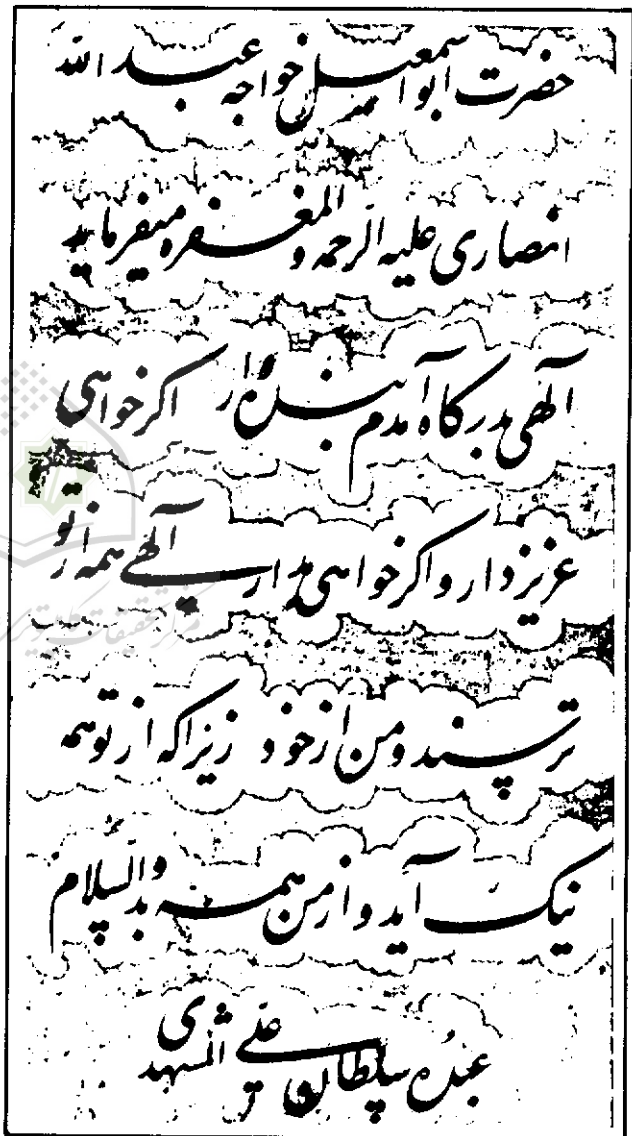 حضرت ابو اسمعیل خواجه عبد الله
انصاری علیه الرحمه و المغفره میفرماید
الهی بدرگاه آمدم بنده وار اگر خواهی
عزیز دار و اگر خواهی خوار الهی همه از تو
ترسند و من از خود زیرا که از تو همه
نیک آید و از من همه بد والسلام
عبده سلطان علی المشهدی